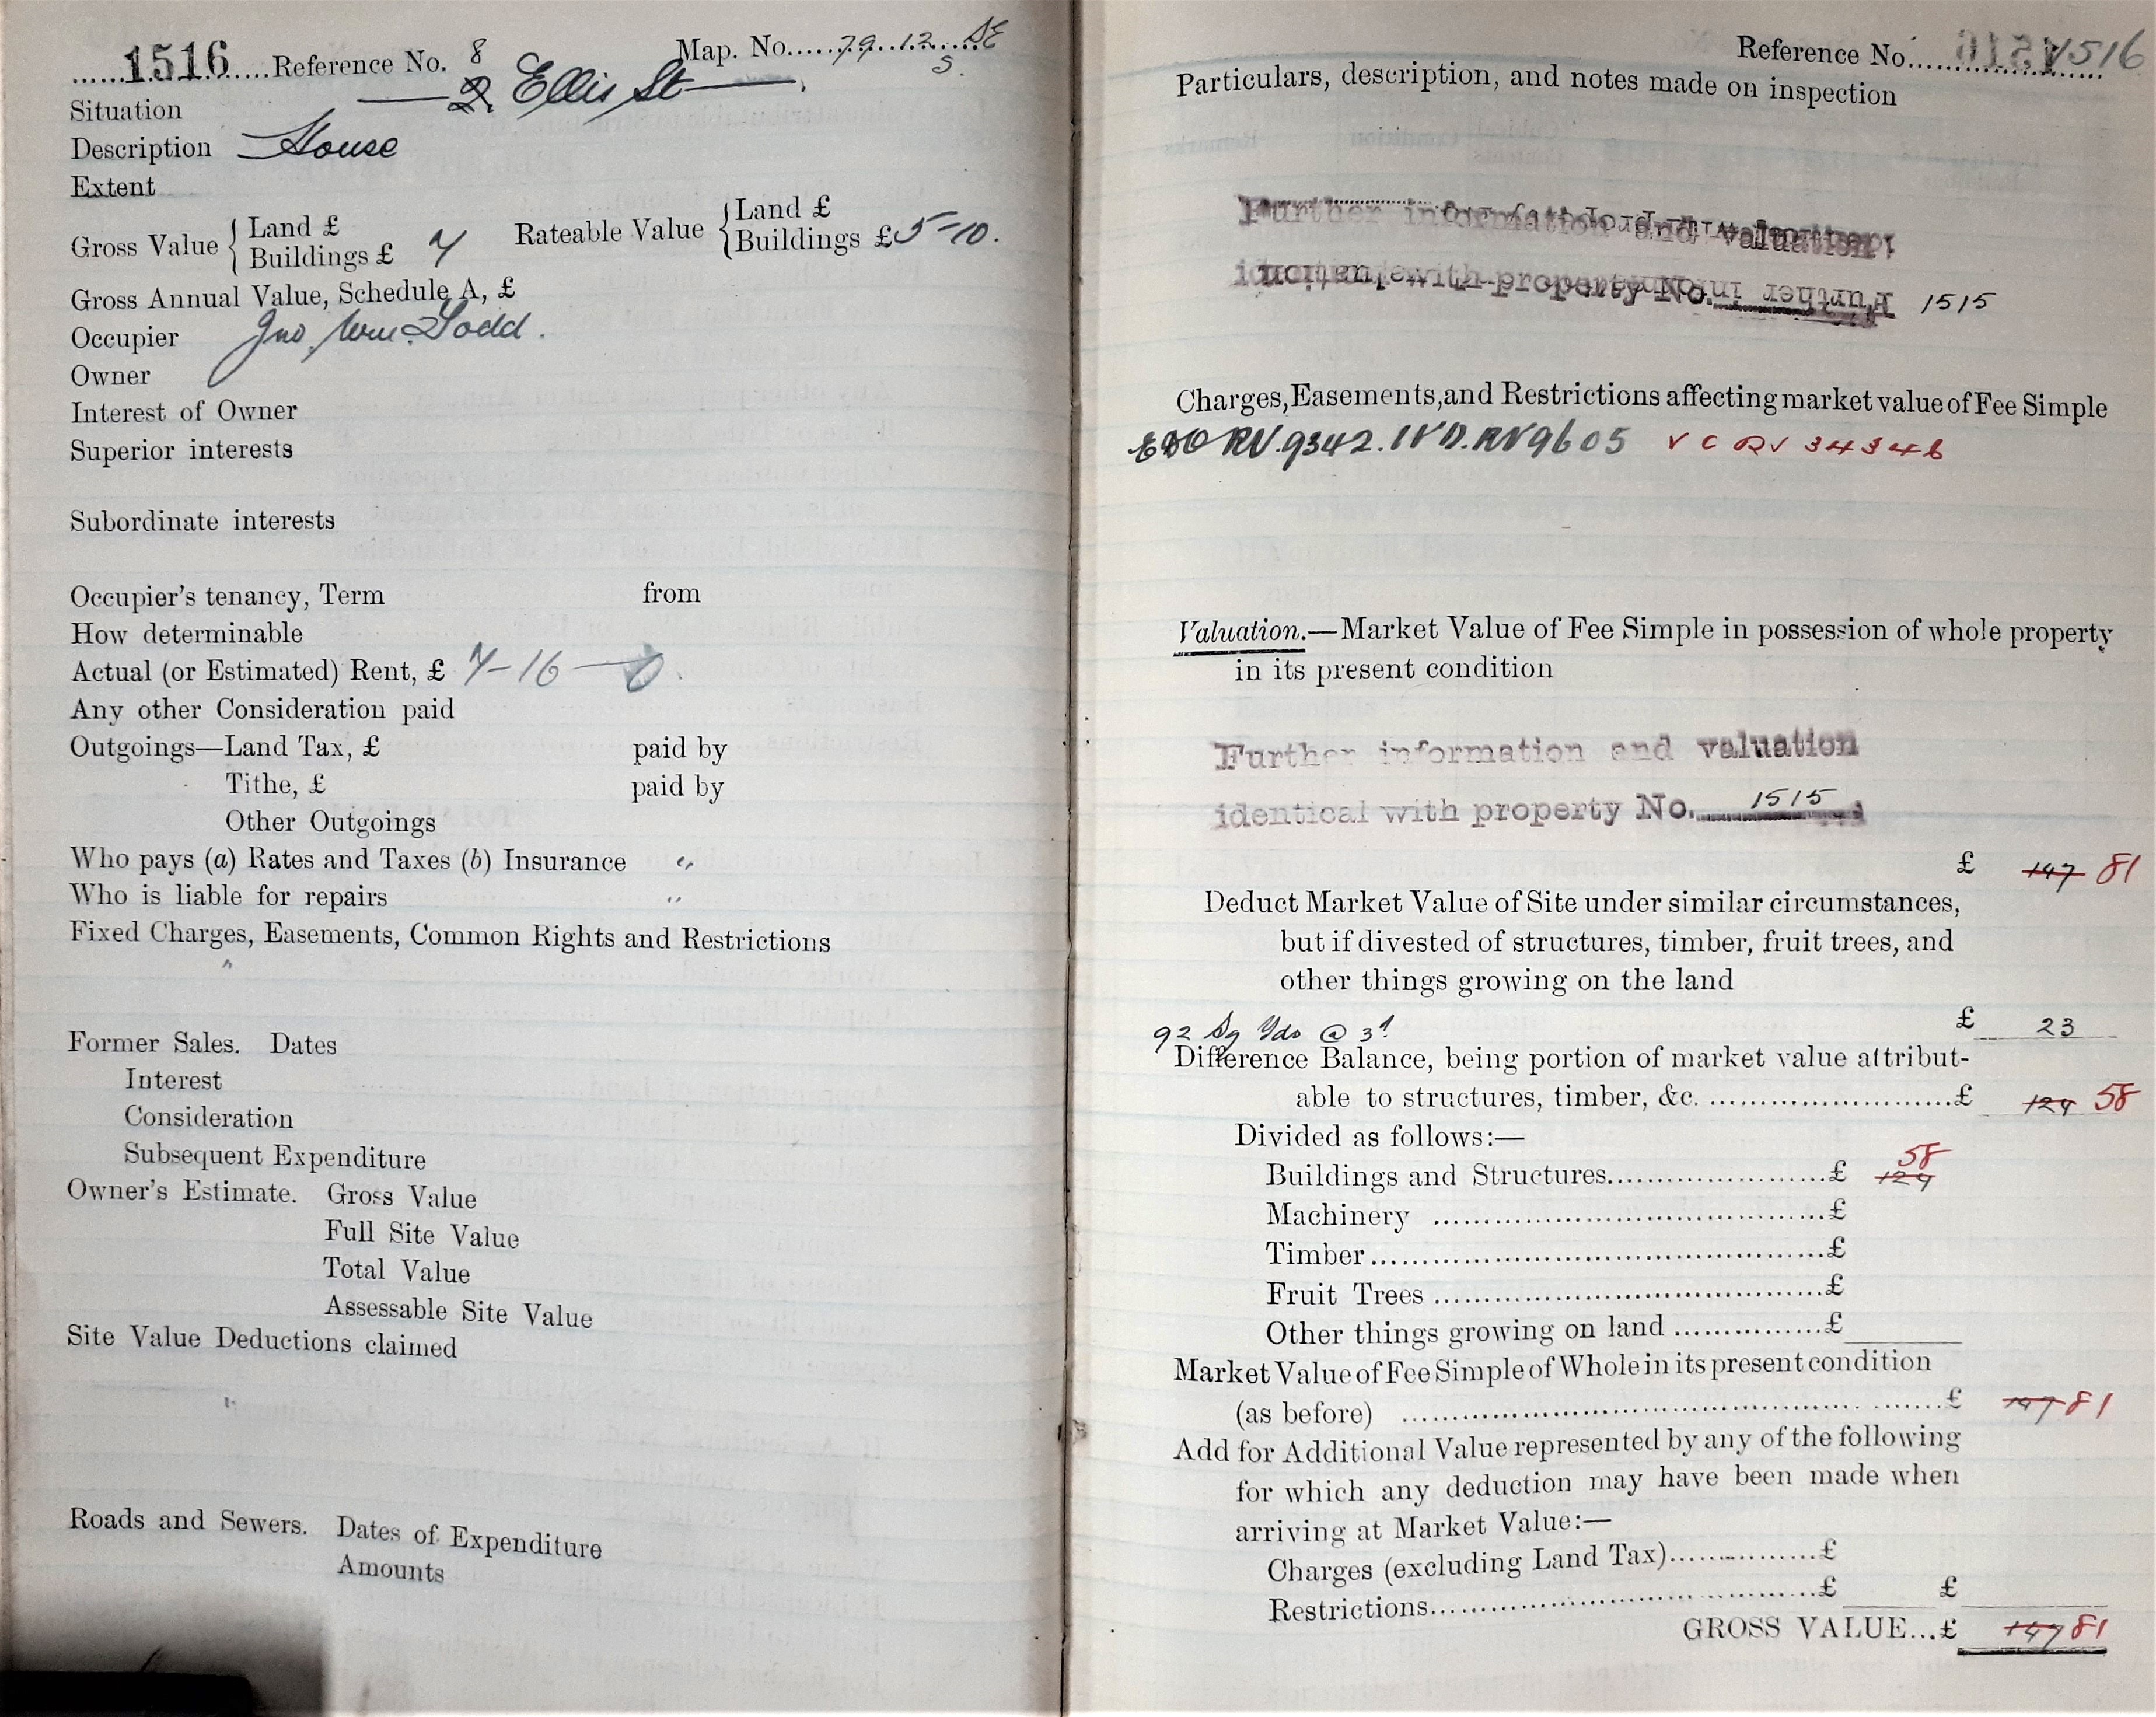 1516 Reference No. 8 Map. No. 79.12. SE
5.
Situation 2 Ellis St
Description House
Extent
Gross Value { Land £ Rateable Value { Land £
Buildings £ 7 Buildings £ 5-10.
Gross Annual Value, Schedule A, £
Occupier Jno. Wm. Todd.
Owner
Interest of Owner
Superior interests
Subordinate interests
Occupier's tenancy, Term from
How determinable
Actual (or Estimated) Rent, £ 7-16-0.
Any other Consideration paid
Outgoings—Land Tax, £ paid by
Tithe, £ paid by
Other Outgoings
Who pays (a) Rates and Taxes (b) Insurance "
Who is liable for repairs "
Fixed Charges, Easements, Common Rights and Restrictions
Former Sales. Dates
Interest
Consideration
Subsequent Expenditure
Owner's Estimate. Gross Value
Full Site Value
Total Value
Assessable Site Value
Site Value Deductions claimed
Roads and Sewers. Dates of Expenditure
Amounts
Reference No. 1516
Particulars, description, and notes made on inspection
Further information and valuation
identical with property No. 1515
Charges, Easements, and Restrictions affecting market value of Fee Simple
RV.9342. IVD. RV9605 V C RV 34346
Valuation.—Market Value of Fee Simple in possession of whole property
in its present condition
Further information and valuation
identical with property No. 1515
£ 147 81
Deduct Market Value of Site under similar circumstances,
but if divested of structures, timber, fruit trees, and
other things growing on the land
92 Sq Yds @ 3/ £ 23
Difference Balance, being portion of market value attribut-
able to structures, timber, &c. £ 124 58
Divided as follows:—
58
Buildings and Structures £ 124
Machinery £
Timber £
Fruit Trees £
Other things growing on land £
Market Value of Fee Simple of Whole in its present condition
(as before) £ 147 81
Add for Additional Value represented by any of the following
for which any deduction may have been made when
arriving at Market Value:—
Charges (excluding Land Tax) £
Restrictions £ £
GROSS VALUE...£ 147 81